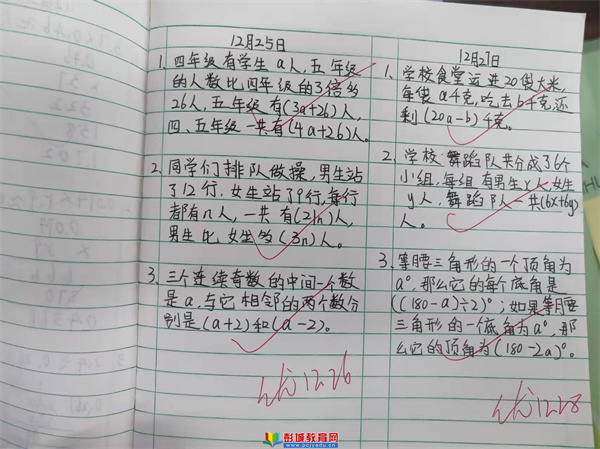 12月25日
1、四年级有学生a人,五年级
的人数比四年级的3倍多
26人,五年级有(3a+26)人,
四、五年级一共有(4a+26)人。
2、同学们排队做操,男生站
了12行,女生站了9行,每行
都有n人,一共有(21n)人,
男生比女生多(3n)人。
3、三个连续奇数的中间一个数
是a,与它相邻的两个数分
别是(a+2)和(a-2)。
优12.26
12月27日
1、学校食堂运进20袋大米,
每袋a千克,吃去b千克,还
剩(20a-b)千克。
2、学校舞蹈队共分成了6个
小组,每组有男生x人,女生
y人,舞蹈队一共(6x+6y)
人。
3、等腰三角形的一个顶角为
a°,那么它的每个底角是
((180-a)÷2)°;如果等腰
三角形的一个底角为a°,那
么它的顶角为(180-2a)°。
优12.28
彭城教育网
www.pcjyedu.cn